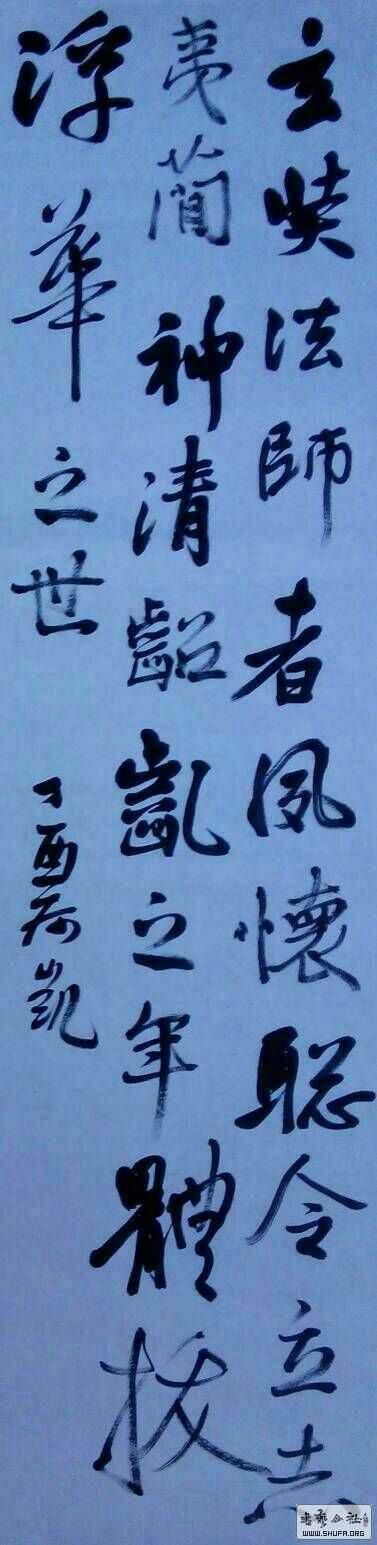 玄奘法師者夙懷聰令立志
夷簡神清齠齔之年體拔
浮華之世
丁酉 凱
书艺公社
WWW.SHUFA.ORG